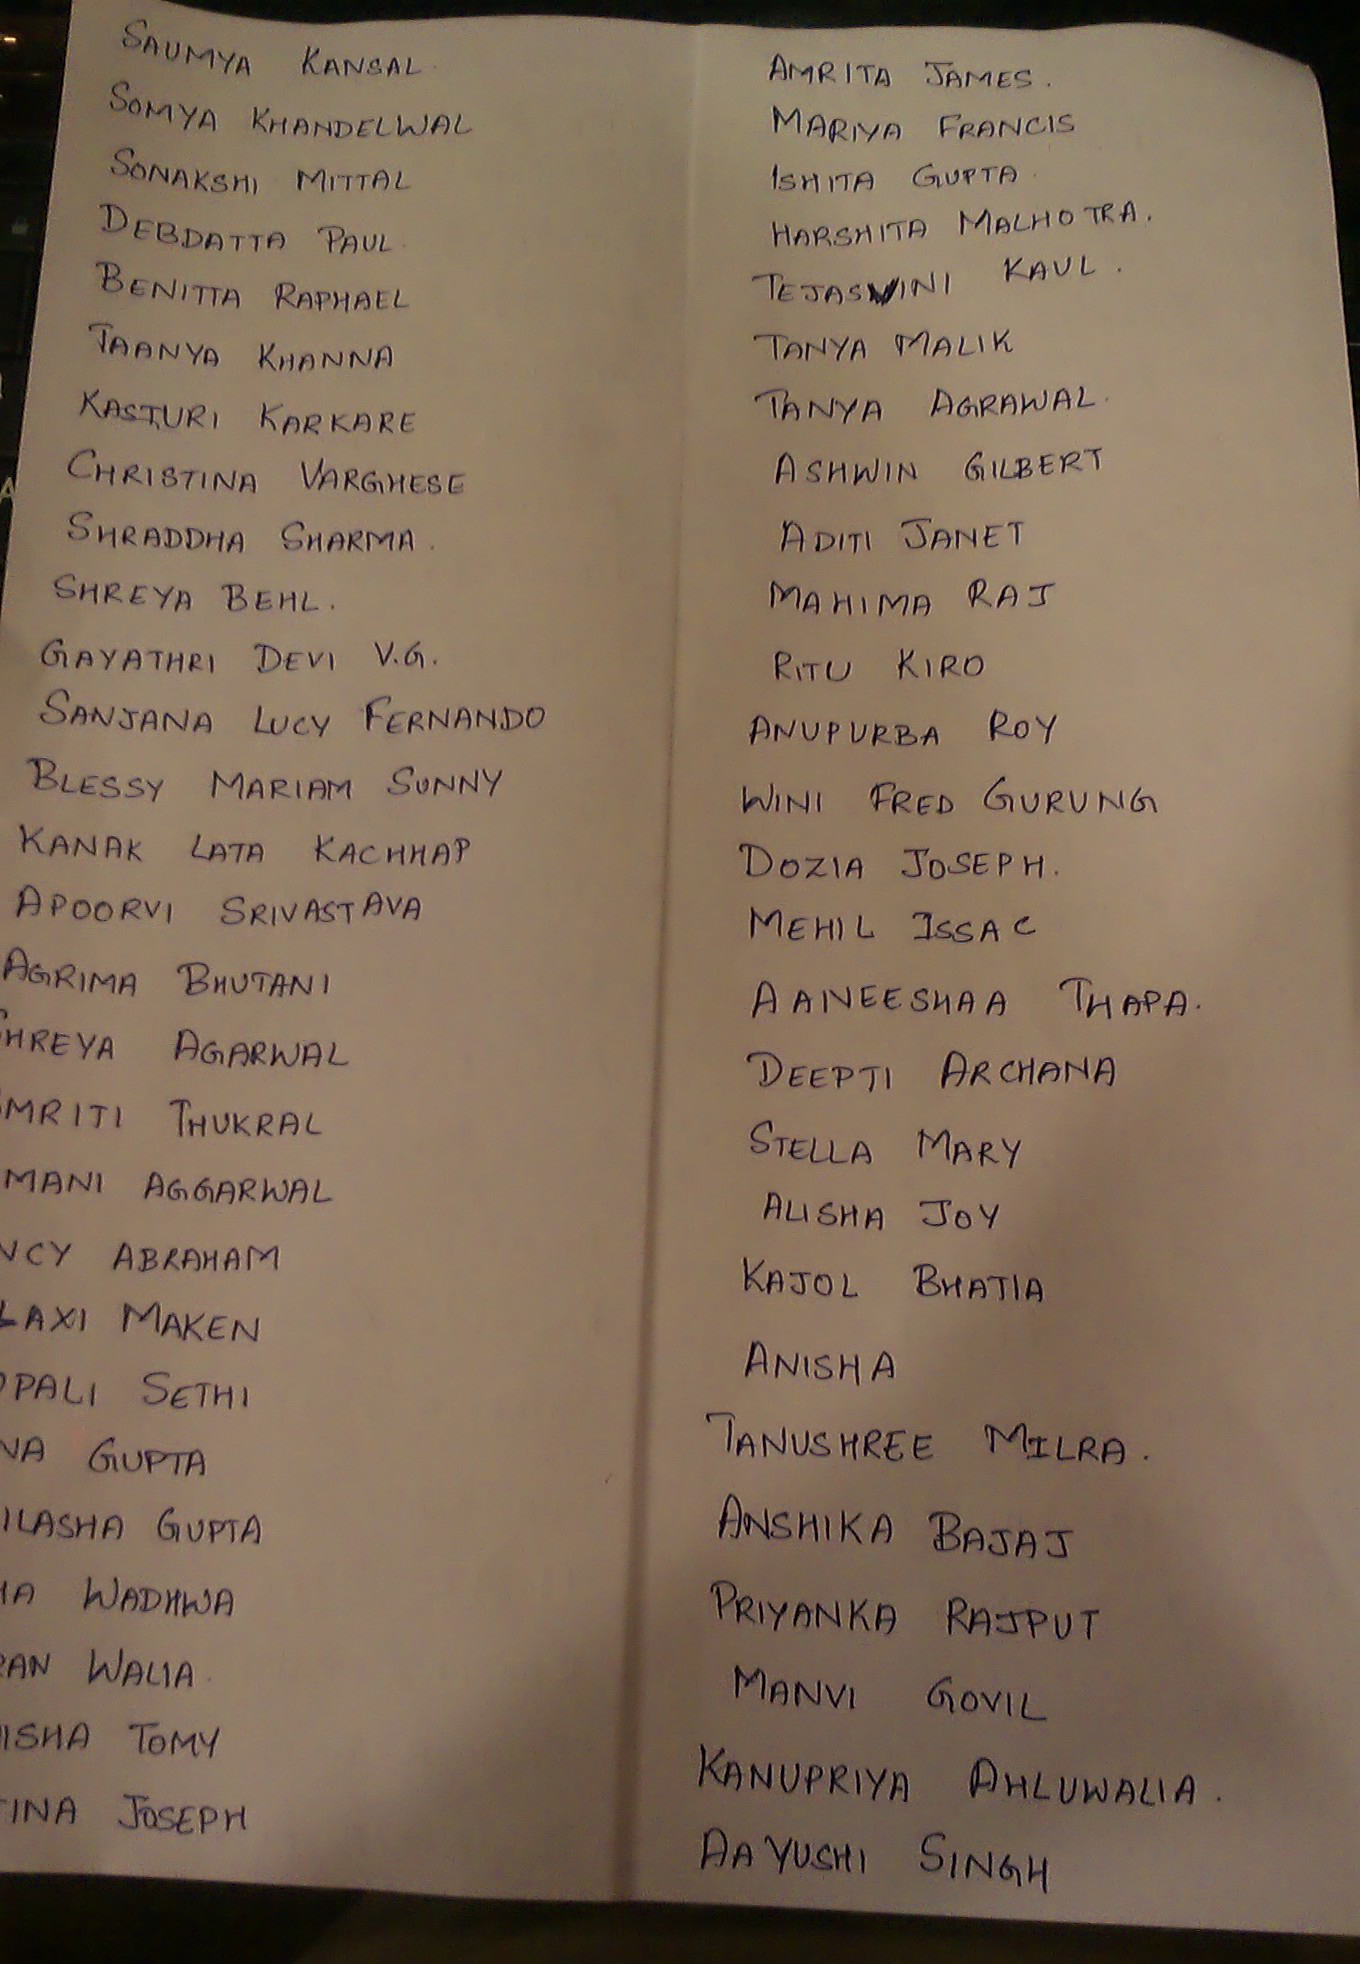 SAUMYA KANSAL
SOMYA KHANDELWAL
SONAKSHI MITTAL
DEBDATTA PAUL
BENITTA RAPHAEL
TAANYA KHANNA
KASTURI KARKARE
CHRISTINA VARGHESE
SHRADDHA SHARMA.
SHREYA BEHL.
GAYATHRI DEVI V.G.
SANJANA LUCY FERNANDO
BLESSY MARIAM SUNNY
KANAK LATA KACHHAP
APOORVI SRIVASTAVA
AGRIMA BHUTANI
SHREYA AGARWAL
MRITI THUKRAL
MANI AGGARWAL
NCY ABRAHAM
LAXI MAKEN
PALI SETHI
NA GUPTA
ILASHA GUPTA
HA WADHWA
RAN WALIA.
ISHA TOMY
TINA JOSEPH
AMRITA JAMES.
MARIYA FRANCIS
ISHITA GUPTA
HARSHITA MALHOTRA.
TEJASWINI KAUL.
TANYA MALIK
TANYA AGRAWAL.
ASHWIN GILBERT
ADITI JANET
MAHIMA RAJ
RITU KIRO
ANUPURBA ROY
WINI FRED GURUNG
DOZIA JOSEPH.
MEHIL ISSAC
AANEESHAA THAPA.
DEEPTI ARCHANA
STELLA MARY
ALISHA JOY
KAJOL BHATIA
ANISHA
TANUSHREE MILRA.
ANSHIKA BAJAJ
PRIYANKA RAJPUT
MANVI GOVIL
KANUPRIYA AHLUWALIA.
AAYUSHI SINGH